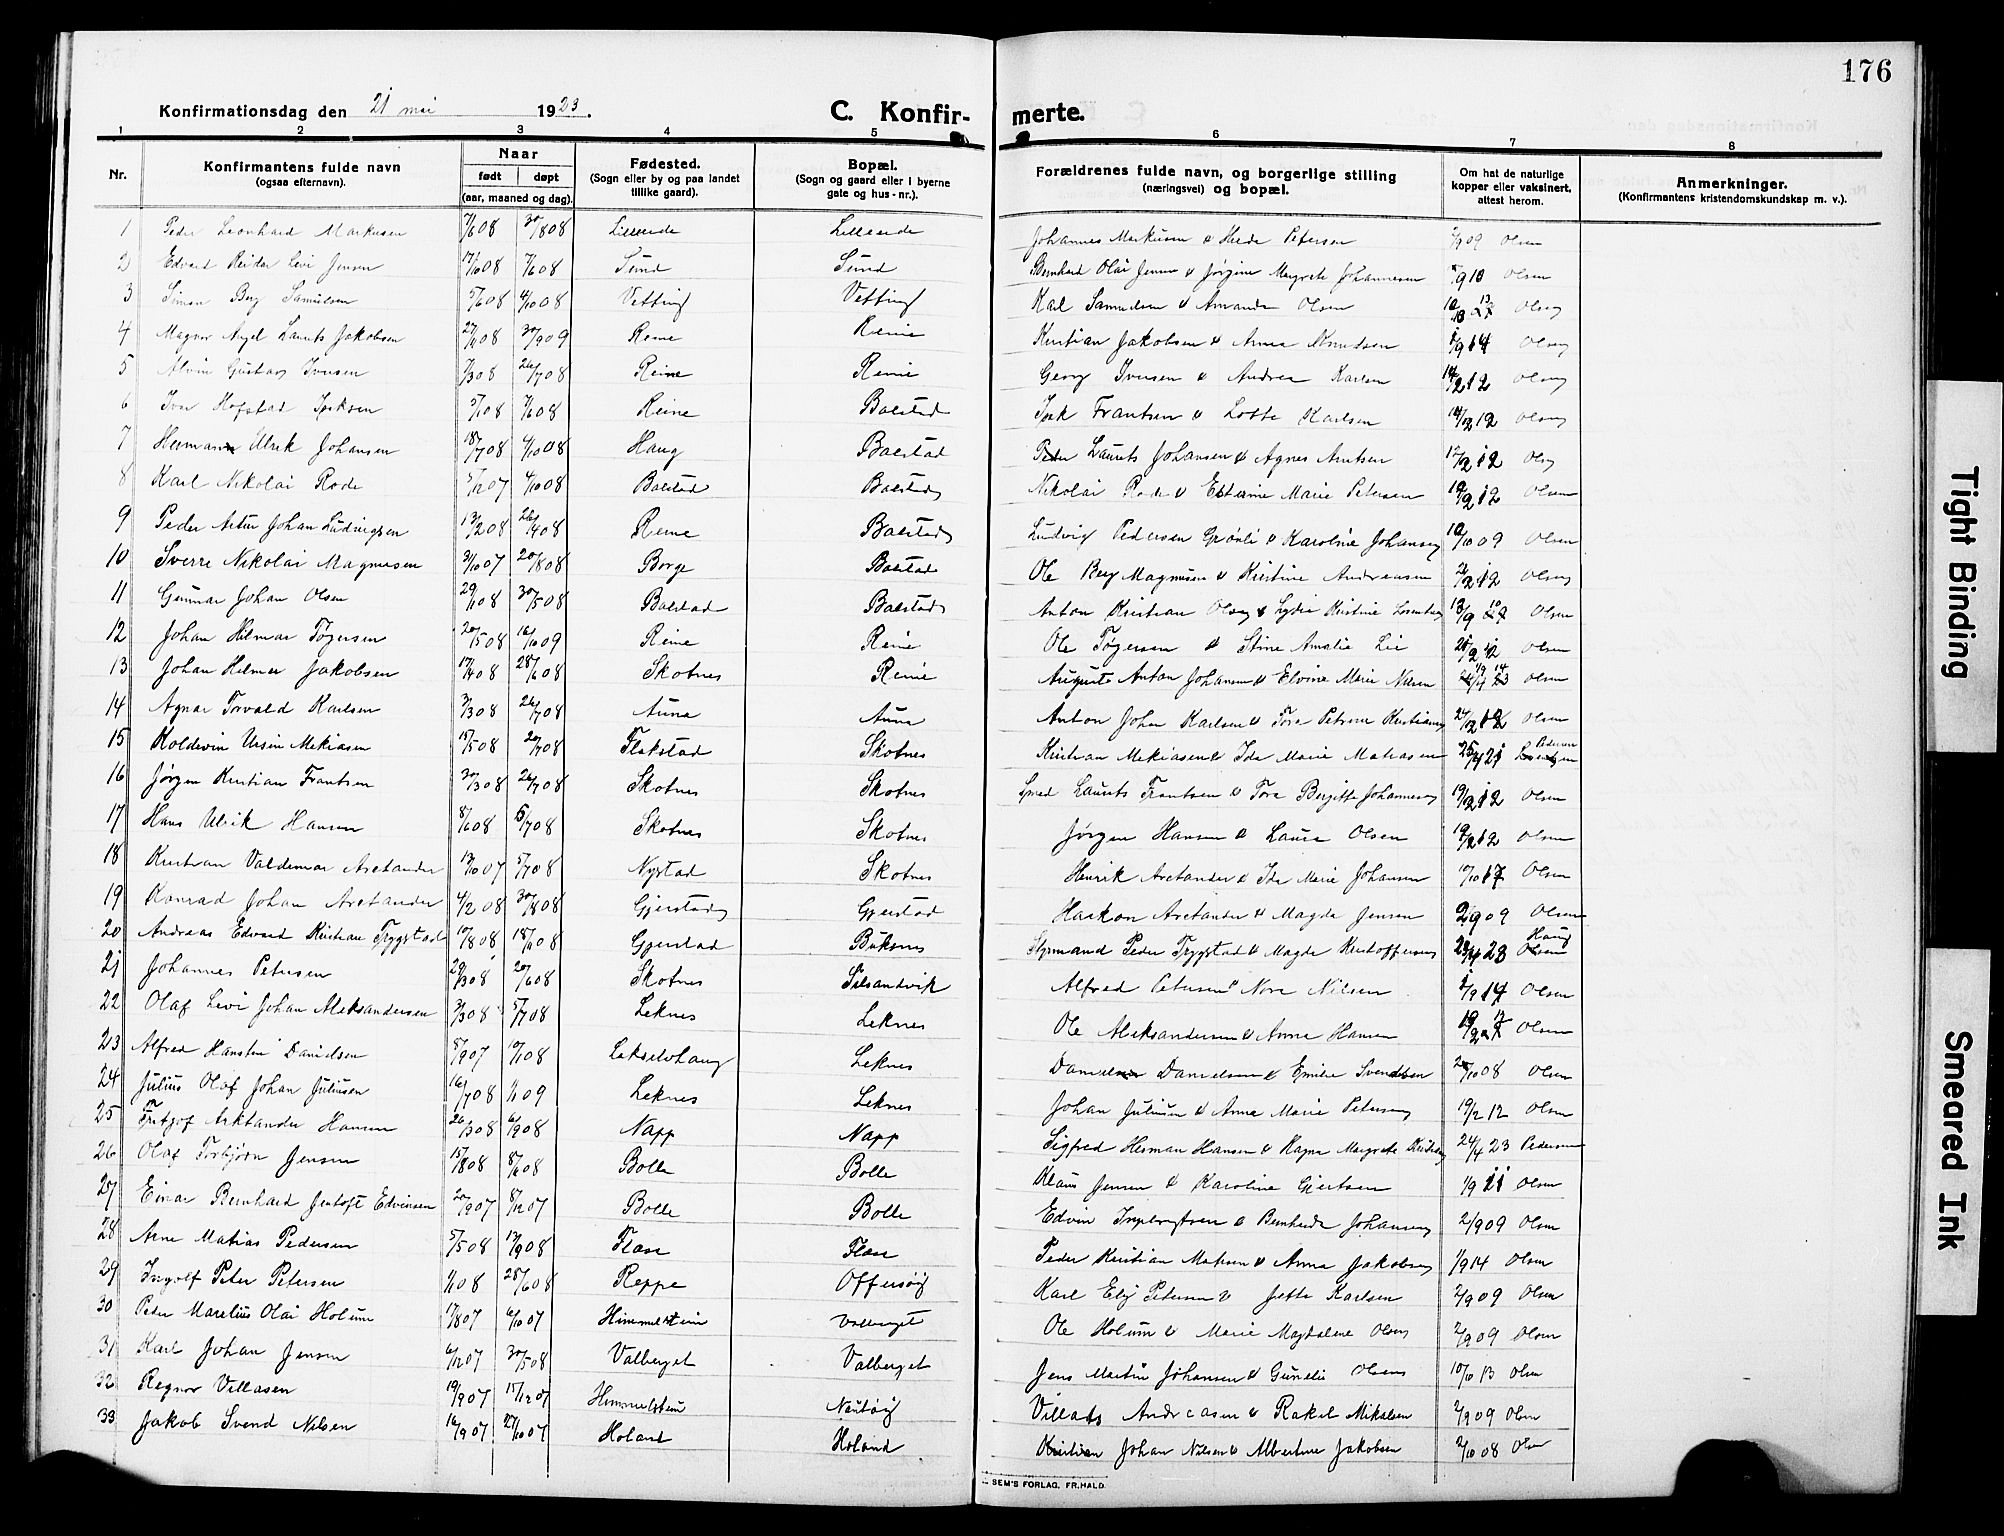 176
Konfirmationsdag den 21 mai 1923.
C. Konfirmerte.
1 2 3 4 5 6 7 8
Nr. Konfirmantens fulde navn (ogsaa efternavn). Naar født døpt (aar, maaned og dag). Fødested. (Sogn eller by og paa landet tillike gaard). Bopæl. (Sogn og gaard eller i byerne gate og hus-nr.). Forældrenes fulde navn, og borgerlige stilling (næringsvei) og bopæl. Om hat de naturlige kopper eller vaksinert, attest herom. Anmerkninger. (Konfirmantens kristendomskundskap m. v.).
1 Peder Leonhard Markusen 7/6 08 30/8 08 Lilleeide Lilleeide Johannes Markusen & Petersen 2/9 09 Olsen
2 Edvard Reidar Levi Jensen 7/6 08 Sund Sund Bernhard Olai Jensen & Jørgine Margrete Johannesen Olsen
3 Simon Berg Samuelsen 5/6 08 4/10 08 Vetting Vetting Karl Samuelsen & Amanda Olsen Olsen
4 Magnor Laurits Jakobsen 30/9 09 Reine Reine Kristian Jakobsen & Anna Knudsen 1/9 14 Olsen
5 Alvin Gustav Iversen 7/3 08 26/7 08 Reine Reine Georg Iversen & Andrea Karlsen 14/2 12 Olsen
6 Ivar Hofstad Isaksen 7/6 08 Reine Balstad Isak Frantsen & Lotte Karlsen 14/2 12 Olsen
7 Hermann Ulrik Johansen 18/7 08 4/10 08 Haug Balstad Peder Laurits Johansen & Agnes Arntsen 12 Olsen
8 Karl Nikolai Rode 5/12 07 4/10 08 Balstad Balstad Nikolai Rode & Marie Petersen 19/2 12 Olsen
9 Peder Artur Johan Ludvigsen 13/2 08 26/4 08 Reine Balstad Ludvig Pedersen & Karoline Johansen 10/10 09 Olsen
10 Sverre Nikolai Magnusen 31/10 07 20/8 08 Borge Balstad Ole Berg Magnusen & Kristine Andreassen 12 Olsen
11 Gunnar Johan Olsen 29/1 08 30/5 08 Balstad Balstad Anton Kristian Olsen & Lydia Kristine Olsen
12 Johan Hilmar Tøgersen 20/5 08 16/10 09 Reine Reine Ole Tøgersen & Stine Amalie Lie 12 Olsen
13 Johan Helmer Jakobsen 17/4 08 28/6 08 Skotnes Reine August Anton Johansen & Elvine Marie Nilsen Olsen
14 Agnar Torvald Karlsen 3/3 08 26/7 08 Auna Auna Anton Johan Karlsen & Tora Petrine Kristiansen 12 Olsen
15 Koldevin Ursin Mekiasen 15/5 08 20/7 08 Flakstad Skotnes Kristian Mekiasen & Ida Marie Matiasen 25/4 21 Pedersen
16 Jørgen Kristian Frantsen 30/3 08 26/7 08 Skotnes Skotnes Smed Laurits Frantsen & Tora Bergitte Johannesen 19/2 12 Olsen
17 Hans Ulrik Hansen 8/6 08 5/7 08 Skotnes Skotnes Jørgen Hansen & Laura Olsen 19/2 12 Olsen
18 Kristian Valdemar Arctander 13/10 07 5/7 08 Nystad Skotnes Henrik Arctander & Ida Marie Johansen 10/10 17 Olsen
19 Konrad Johan Arctander 4/2 08 30/8 08 Gjerstad Gjerstad Haakon Arctander & Magda Jensen 2/9 09 Olsen
20 Andreas Edvard Kristian Trygstad 10/8 08 Gjerstad Buksnes Styrmand Peder Trygstad & Magda Kristoffersen 23 Haug
21 Johannes Petersen 29/3 08 20/6 08 Skotnes Silsandvik Alfred Petersen & Nora Nilsen 1/9 14 Olsen
22 Olaf Levi Johan Aleksandersen 3/3 08 5/7 08 Leknes Leknes Ole Aleksandersen & Anna Hansen Olsen
23 Alfred Hanstin Danielsen 8/9 07 10/1 08 Lekselvhaug Leknes Daniel Danielsen & Emilie Svendsen 08 Olsen
24 Julius Olaf Johan Juliusen 16/7 08 1/1 09 Leknes Leknes Johan Juliusen & Anna Marie Petersen 19/2 12 Olsen
25 Fritjof Arktander Hansen 26/3 08 6/9 08 Napp Napp Sigfred Herman Hansen & Ragna Margrete 24/4 23 Pedersen
26 Olaf Torbjørn Jensen 8/6 08 Bolle Bolle Klaus Jensen & Karoline Gjertsen 1/9 11 Olsen
27 Einar Bernhard Jentoft Edvinsen 20/9 07 8/12 07 Bolle Bolle Edvin Ingebrigtsen & Bernharda Johansen 2/9 09 Olsen
28 Arne Matias Pedersen 5/5 08 13/9 08 Flæse Flæse Peder Kristian Matisen & Anna Jakobsen 1/9 14 Olsen
29 Ingolf Peter Petersen 1/1 08 28/6 08 Reppe Offersøy Karl Elij Petersen & Jette Karlsen 2/9 09 Olsen
30 Peder Marelius Olai Holum 17/8 07 6/10 07 Himmelstein Valberget Ole Holum & Marie Magdalene Olsen 2/9 09 Olsen
31 Karl Johan Jensen 6/12 07 30/5 08 Valberget Valberget Jens Martin Johansen & Gunelie Olsen 10/6 13 Olsen
32 Regnor Villasen 19/9 07 15/12 07 Himmelstein Nautøy Villads Andreasen & Rakel Mikalsen 2/9 09 Olsen
33 Jakob Svend Nilsen 16/9 07 27/10 07 Holand Holand Kristian Johan Nilsen & Albertine Jakobsen 2/10 08 Olsen
SEM'S FORLAG, FR.HALD
Tight Binding
Smeared Ink